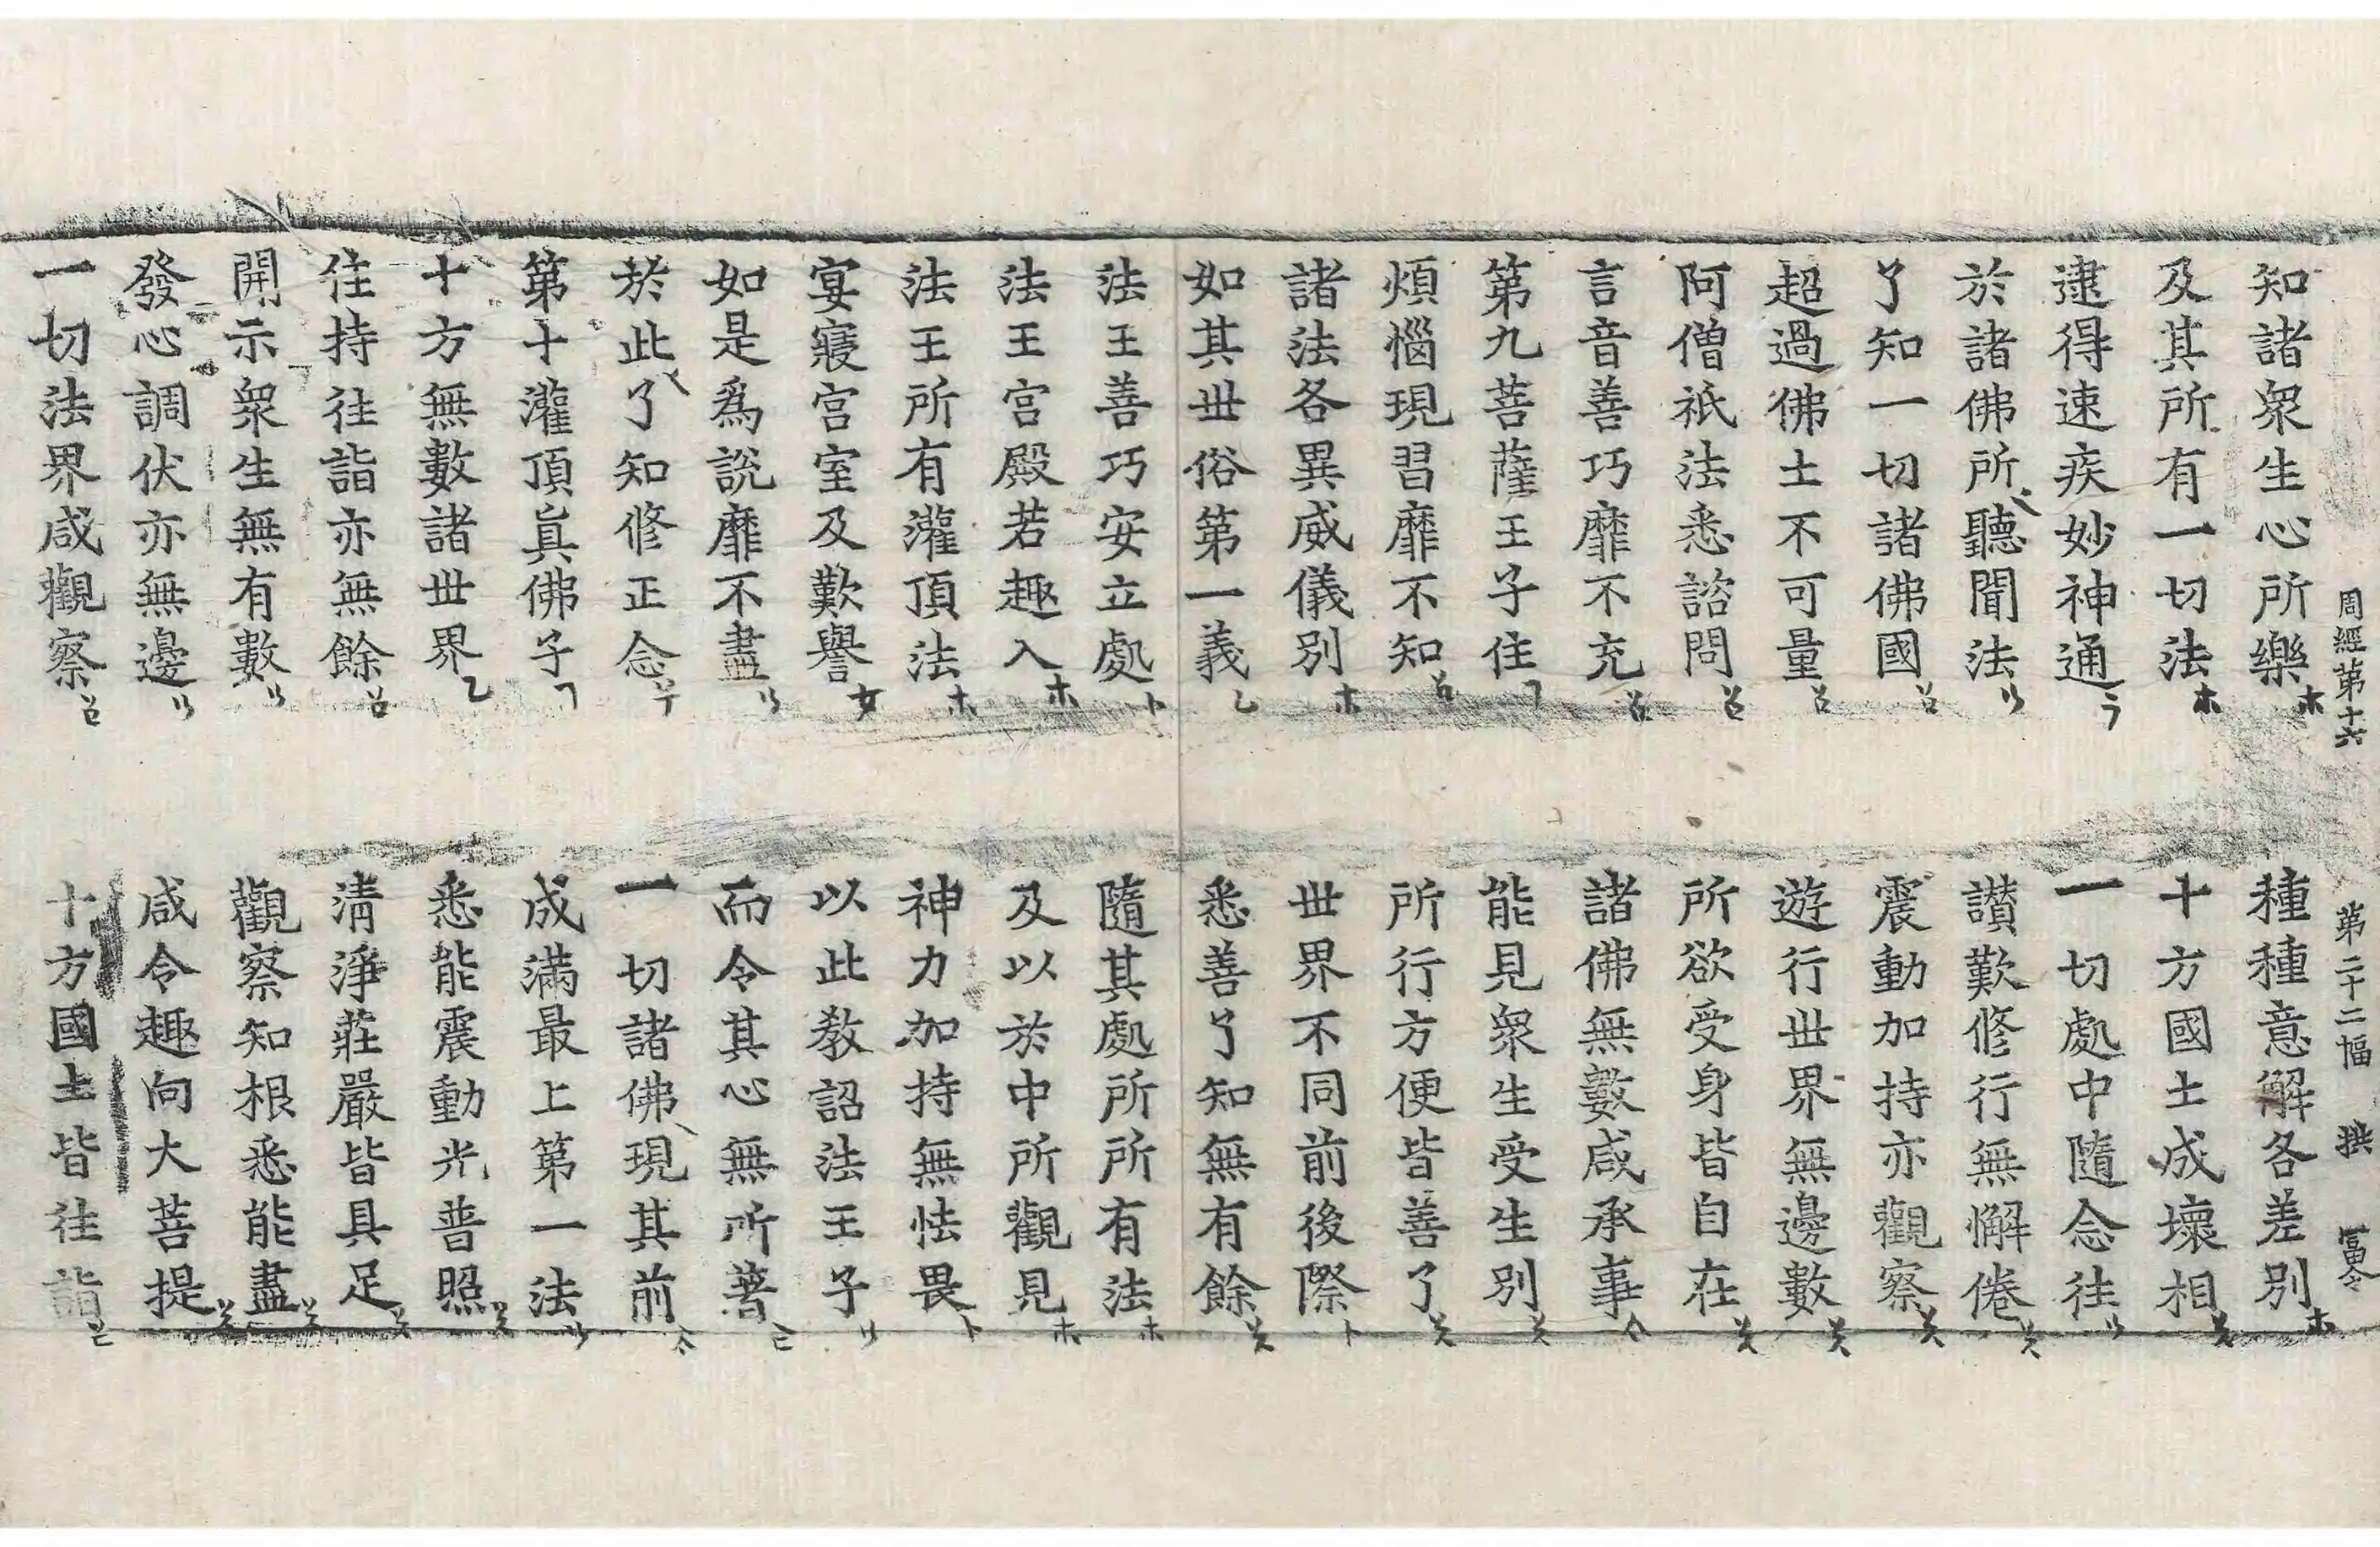 周經第十六 第二十二幅 拱 冨令
知諸衆生心所樂 種種意解各差別
及其所有一切法 十方國土成壞相
逮得速疾妙神通 一切處中隨念往
於諸佛所聽聞法 讃歎修行無懈倦
了知一切諸佛國 震動加持亦觀察
超過佛土不可量 遊行世界無邊數
阿僧祇法悉諮問 所欲受身皆自在
言音善巧靡不充 諸佛無數咸承事
第九菩薩王子住 能見衆生受生別
煩惱現習靡不知 所行方便皆善了
諸法各異威儀別 世界不同前後際
如其世俗第一義 悉善了知無有餘
法王善巧安立處 隨其處所所有法
法王宮殿若趣入 及以於中所觀見
法王所有灌頂法 神力加持無怯畏
宴寢宮室及歎譽 以此教詔法王子
如是爲說靡不盡 而令其心無所著
於此了知修正念 一切諸佛現其前
第十灌頂眞佛子 成滿最上第一法
十方無數諸世界 悉能震動光普照
住持往詣亦無餘 清淨莊嚴皆具足
開示衆生無有數 觀察知根悉能盡
發心調伏亦無邊 咸令趣向大菩提
一切法界咸觀察 十方國土皆往詣